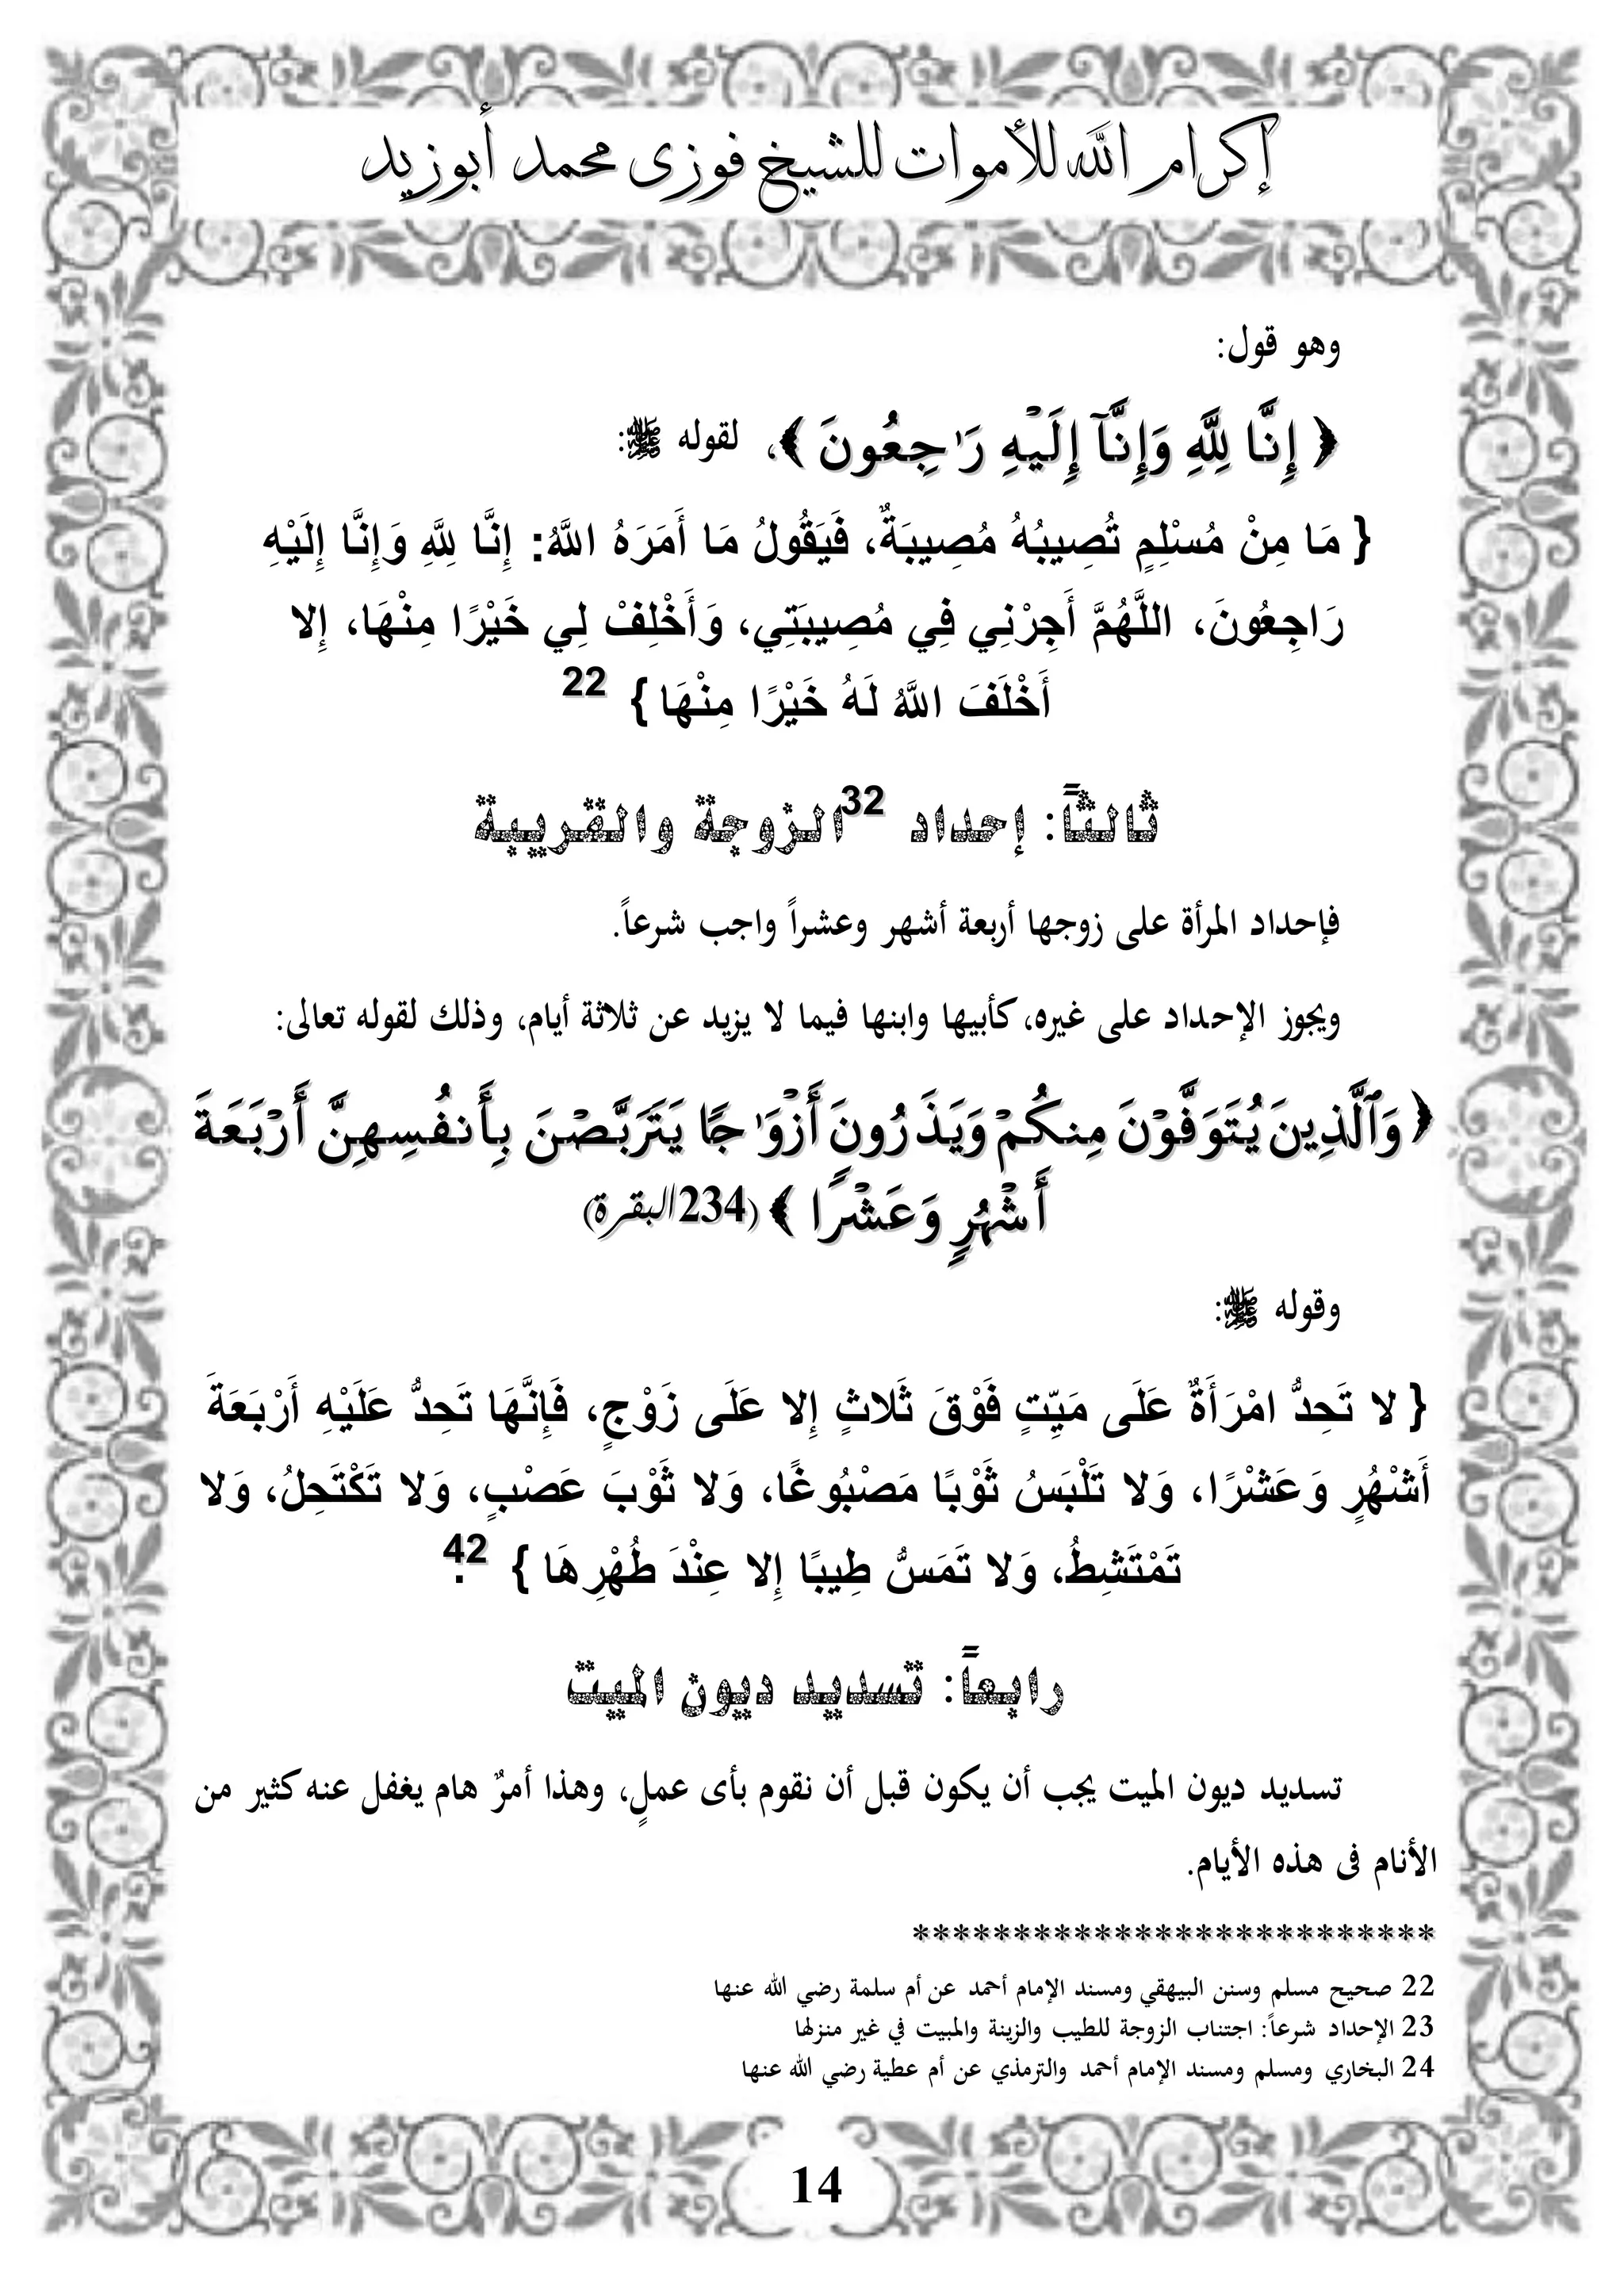 إكرام الله للأموات للشيخ فوزى محمد أبوزيد
وهو قول:
﴿ إِنَّا لِلَّهِ وَإِنَّآ إِلَيْهِ رَٰجِعُونَ ﴾، لقوله ﷺ:
{ مَا مِنْ مُسْلِمٍ تُصِيبُهُ مُصِيبَةٌ، فَيَقُولُ مَا أَمَرَهُ اللَّهُ: إِنَّا لِلَّهِ وَإِنَّا إِلَيْهِ
رَاجِعُونَ، اللَّهُمَّ أَجِرْنِي فِي مُصِيبَتِي، وَأَخْلِفْ لِي خَيْرًا مِنْهَا، إِلا
أَخْلَفَ اللَّهُ لَهُ خَيْرًا مِنْهَا } 22
ثالثاً: إحداد 32الزوجة والقريبة
فإحداد المرأة على زوجها أربعة أشهر وعشراً واجب شرعاً.
ويجوز الإحداد على غيره، كأبيها وابنها فيما لا يزيد عن ثلاثة أيام، وذلك لقوله تعالى:
﴿ وَٱلَّذِينَ يُتَوَفَّوْنَ مِنكُمْ وَيَذَرُونَ أَزْوَٰجًا يَتَرَبَّصْنَ بِأَنفُسِهِنَّ أَرْبَعَةَ
أَشْهُرٍ وَعَشْرًا ﴾ (234البقرة)
وقوله ﷺ:
{ لا تَحِدُّ امْرَأَةٌ عَلَى مَيِّتٍ فَوْقَ ثَلاثٍ إِلا عَلَى زَوْجٍ، فَإِنَّهَا تَحِدُّ عَلَيْهِ أَرْبَعَةَ
أَشْهُرٍ وَعَشْرًا، وَلا تَلْبَسُ ثَوْبًا مَصْبُوغًا، وَلا ثَوْبَ عَصْبٍ، وَلا تَكْتَحِلُ، وَلا
تَمْتَشِطُ، وَلا تَمَسُّ طِيبًا إِلا عِنْدَ طُهْرِهَا } 42.
رابعاً: تسديد ديون الميت
تسديد ديون الميت يجب أن يكون قبل أن نقوم بأى عملٍ، وهذا أمرٌ هام يغفل عنه كثير من
الأنام فى هذه الأيام.
**************************
22 صحيح مسلم وسنن البيهقي ومسند الإمام أحمد عن أم سلمة رضي الله عنها
23 الإحداد شرعاً: اجتناب الزوجة للطيب والزينة والمبيت في غير منزلها
24 البخاري ومسلم ومسند الإمام أحمد والترمذي عن أم عطية رضي الله عنها
14